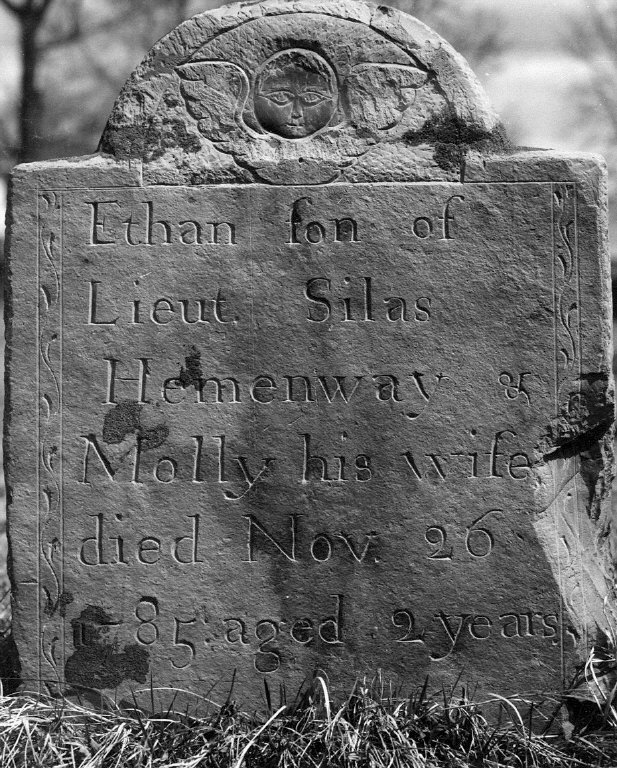 Ethan ſon of
Lieut. Silas
Hemenway &
Molly his wife
died Nov. 26
1785. aged 2 years